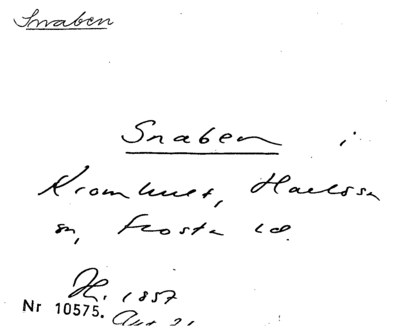 Snaben
Snaben i
Kromhult, Harlösa
sn, Frosta hd.
H. 1857
Nr 10575.